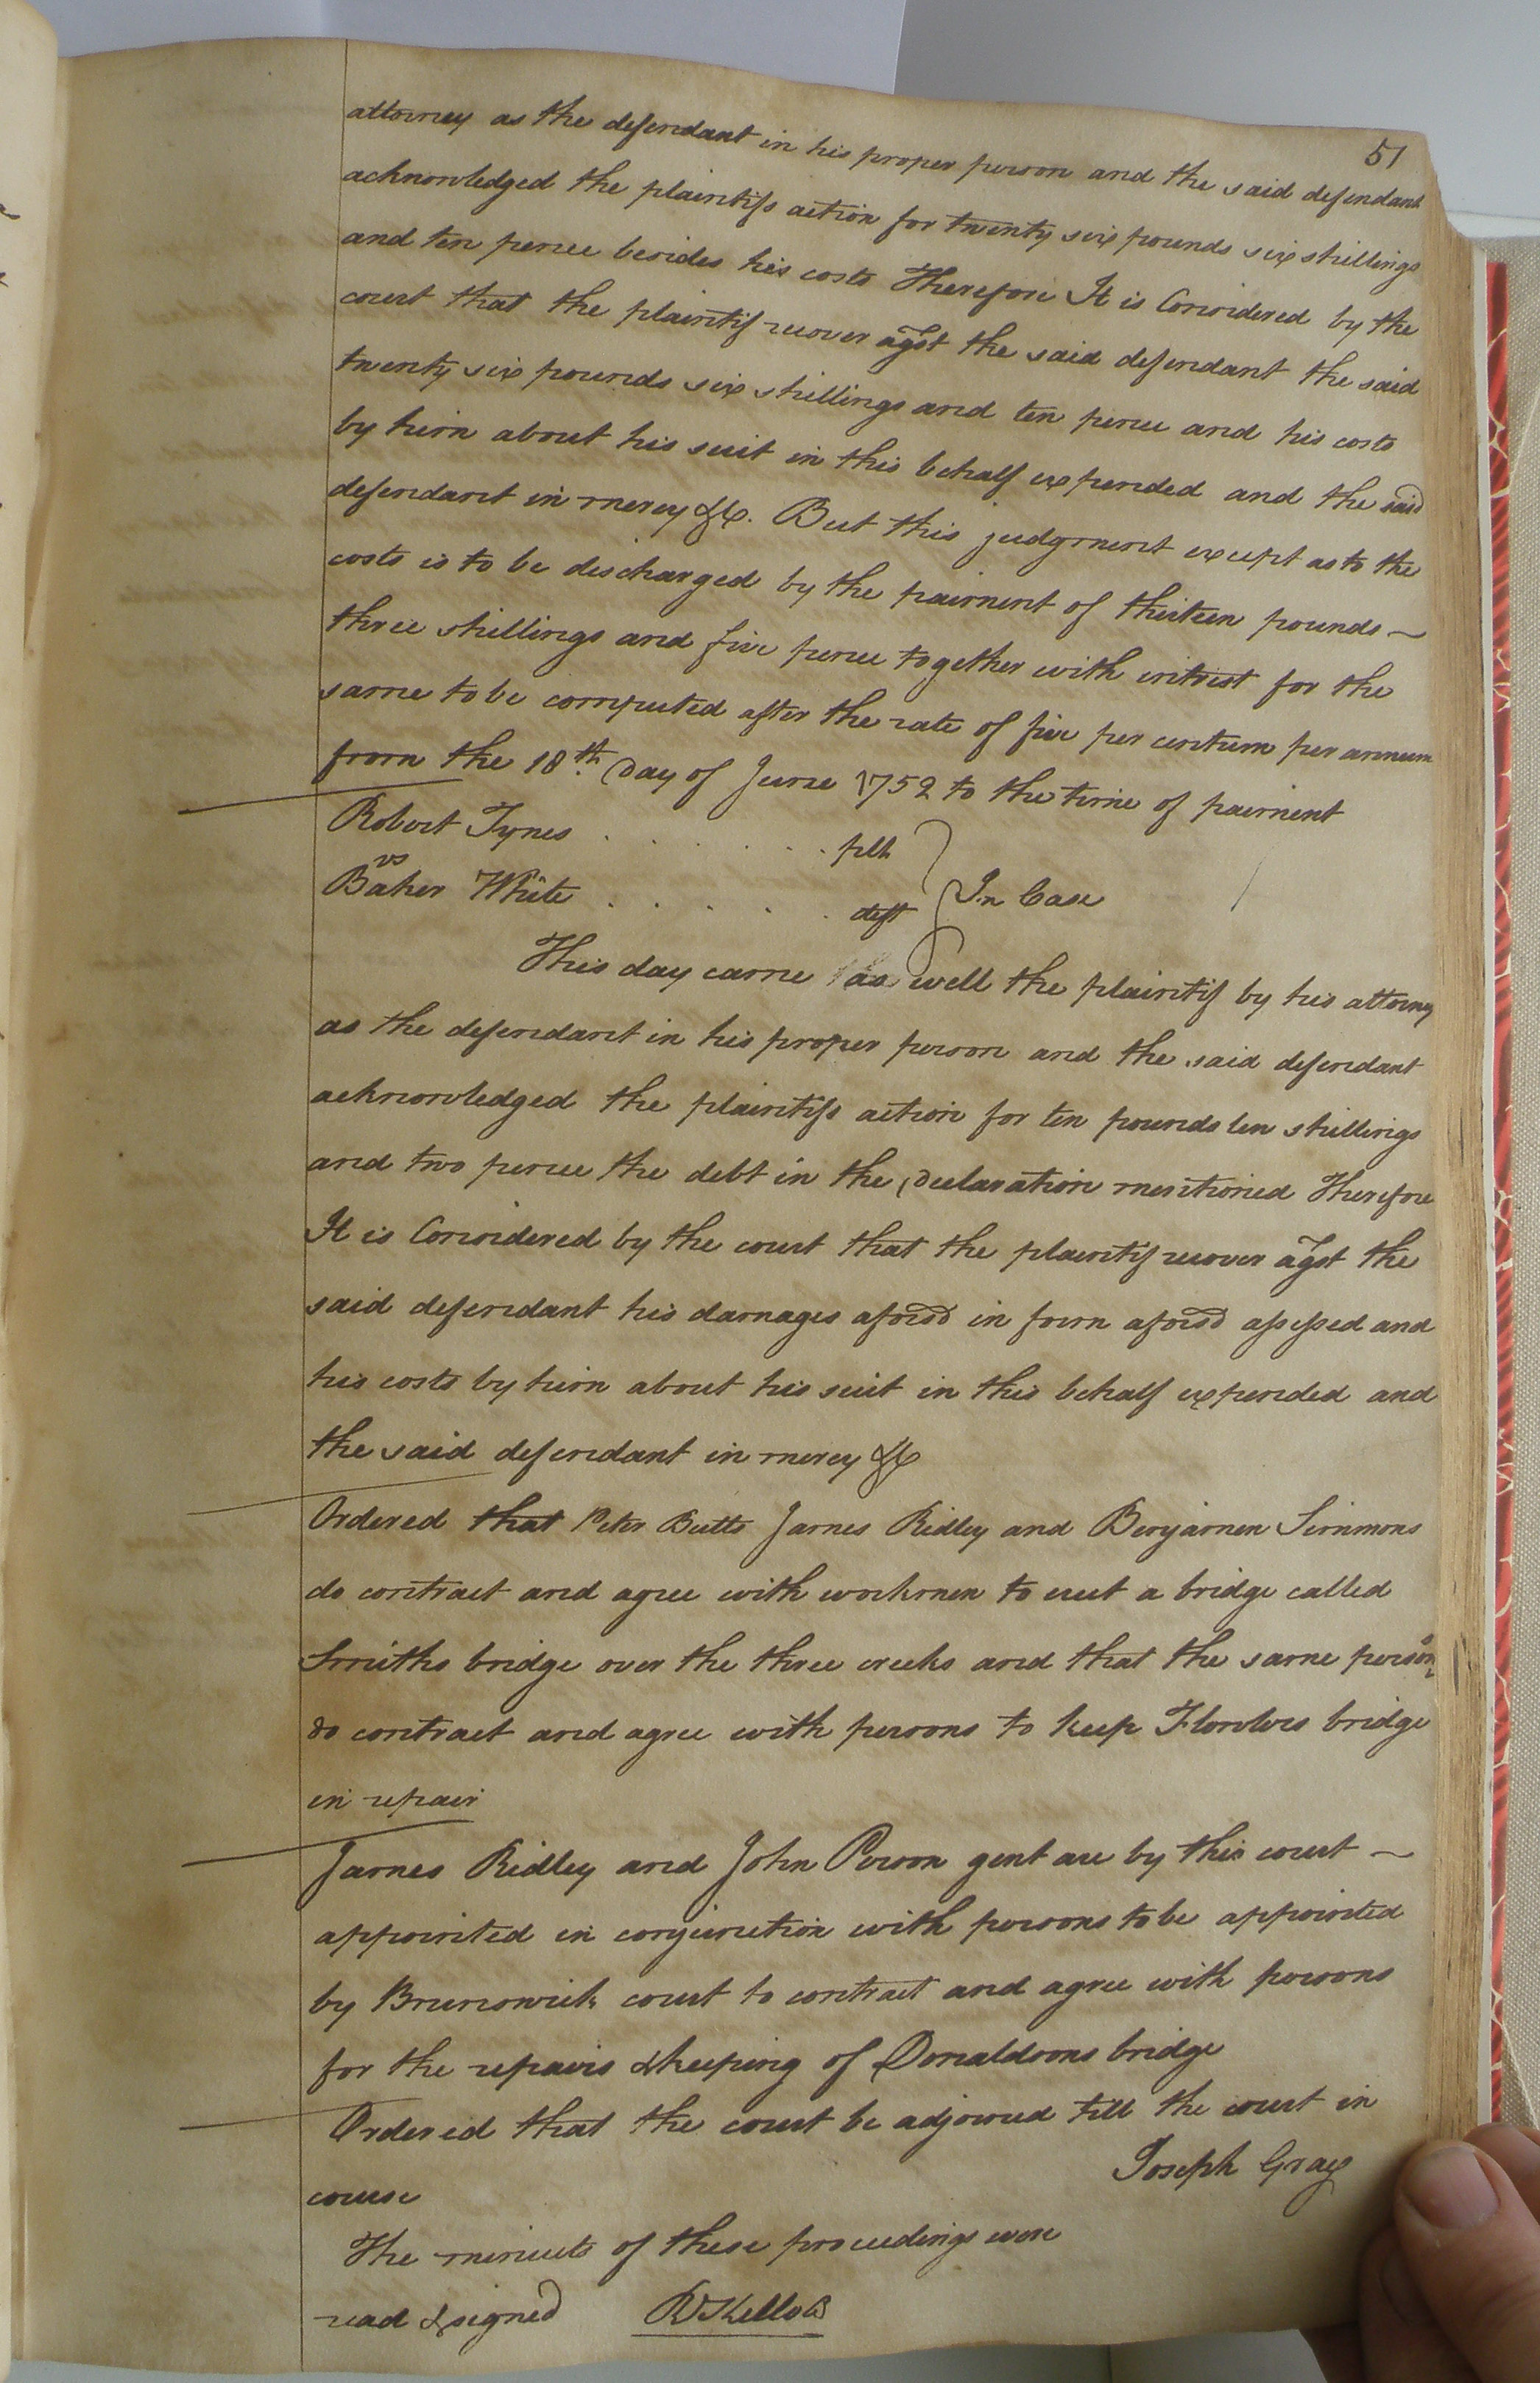 51
attorney as the defendant in his proper person and the said defendant
acknowledged the plaintifs action for twenty six pounds six shillings
and ten pence besides his costs Therefore It is Considered by the
court that the plaintif recover agst the said defendant the said
twenty six pounds six shillings and ten pence and his costs
by him about his suit in this behalf expended and the said
defendant in mercy &c. But this judgment except as to the
costs is to be discharged by the paiment of thirteen pounds
three shillings and five pence together with intrest for the
same to be computed after the rate of five per centum per annum
from the 18th. Day of June 1752 to the time of paiment
Robert Tynes . . . . . . plt
vs
In Case
Baker White . . . . . . deft
This day came as well the plaintif by his attorney
as the defendant in his proper person and the said defendant
acknowledged the plaintifs action for ten pounds ten shillings
and two pence the debt in the Declaration mentioned Therefore
It is Considered by the court that the plaintif recover agst the
said defendant his damages aforsd in form aforsd assessed and
his costs by him about his suit in this behalf expended and
the said defendant in mercy &c
Ordered that Peter Butts James Ridley and Benjamen Simmons
do contract and agree with workmen to erect a bridge called
Smiths bridge over the three creeks and that the same persons
do contract and agree with persons to keep Flowers bridge
in repair
James Ridley and John Person gent are by this court
appointed in conjunction with persons to be appointed
by Brunswick court to contract and agree with persons
for the repairs & keeping of Donaldsons bridge
Ordered that the court be adjorned till the court in
course
Joseph Gray
The minuets of these proceedings were
read & signed
R Kello